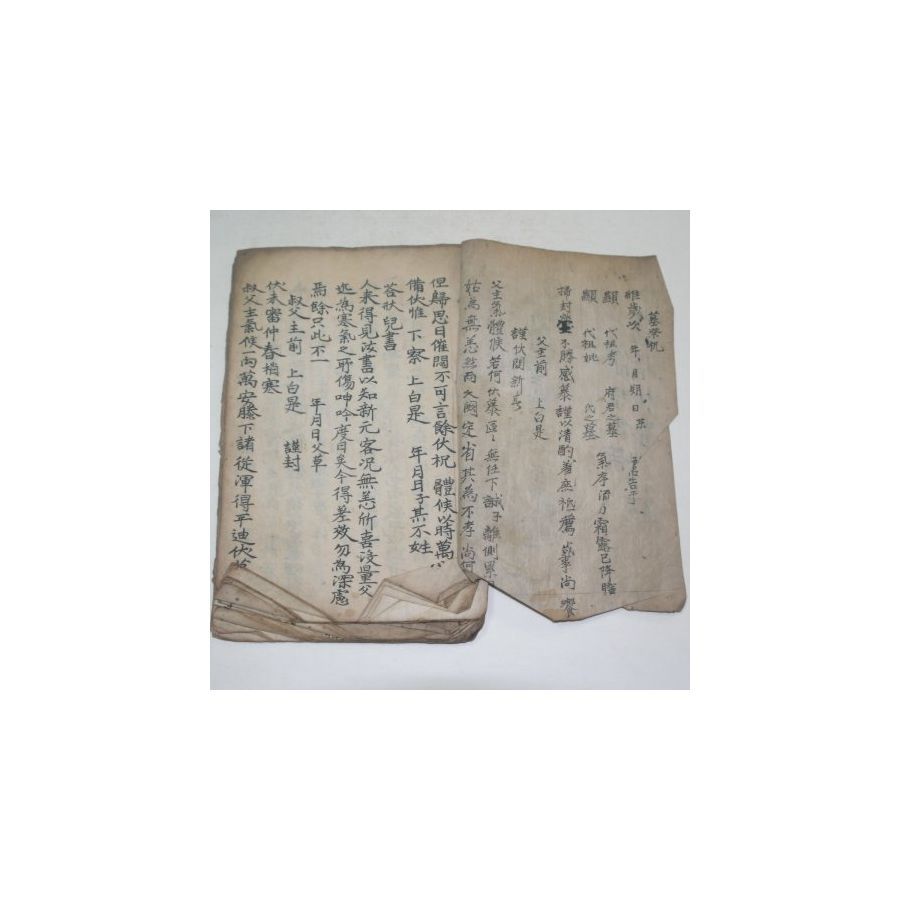 墓祭祝
維歲次 年 月 朔 日 某 孝 告于
顯 代祖考 府君之墓
顯 代祖妣 氏之墓 氣序 霜露已降 瞻
掃封塋 不勝感慕 謹以清酌 庶 薦 事 尚 饗
父主前 上白是
謹伏問新 
父主氣體候若何伏慕區々無任下誠子離側
姑爲無恙然 闕定省其爲不孝尙何
但歸思日催閣不可言餘伏祝 體候以時萬
備伏惟 下察 上白是 年月日子某不姓
答狀兒書
人來得見汝書以知新元客況無恙所喜沒量父
近爲寒氣之所傷呻吟度日矣今得差效勿爲深慮
焉餘只此不一 年月日父草
叔父主前 上白是 謹封
伏未審仲春稍寒
叔父主氣候一向萬安膝下諸從渾得平迪伏